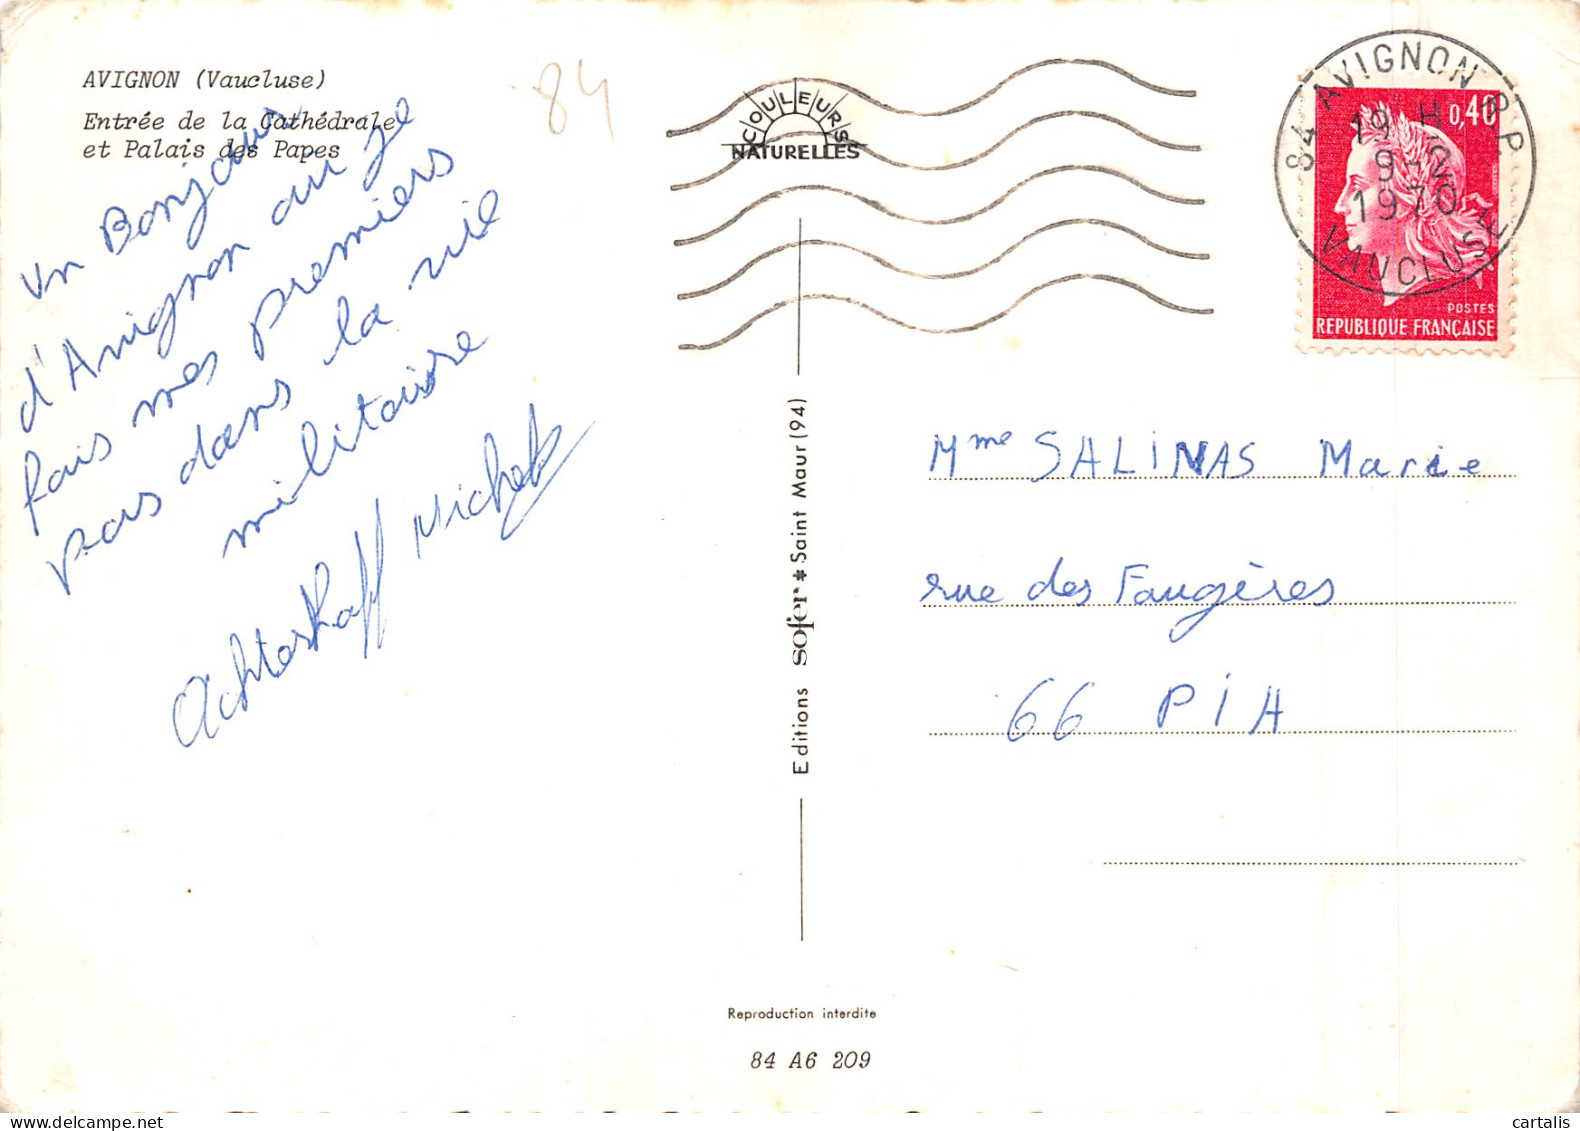 AVIGNON (Vaucluse)
Entrée de la Cathédrale
et Palais des Papes
84
Un Bonjour
d'Avignon ou je
fais mes premiers
pas dans la vie
militaire
Achterhoff Michel
COULEURS
NATURELLES
84 AVIGNON R.P.
19 H
9-2
1970
VAUCLUSE
0,40
POSTES
REPUBLIQUE FRANÇAISE
Editions sofer * Saint Maur (94)
Mme SALINAS Marie
rue des Faugères
66 PIA
Reproduction interdite
84 A6 209
cartalis